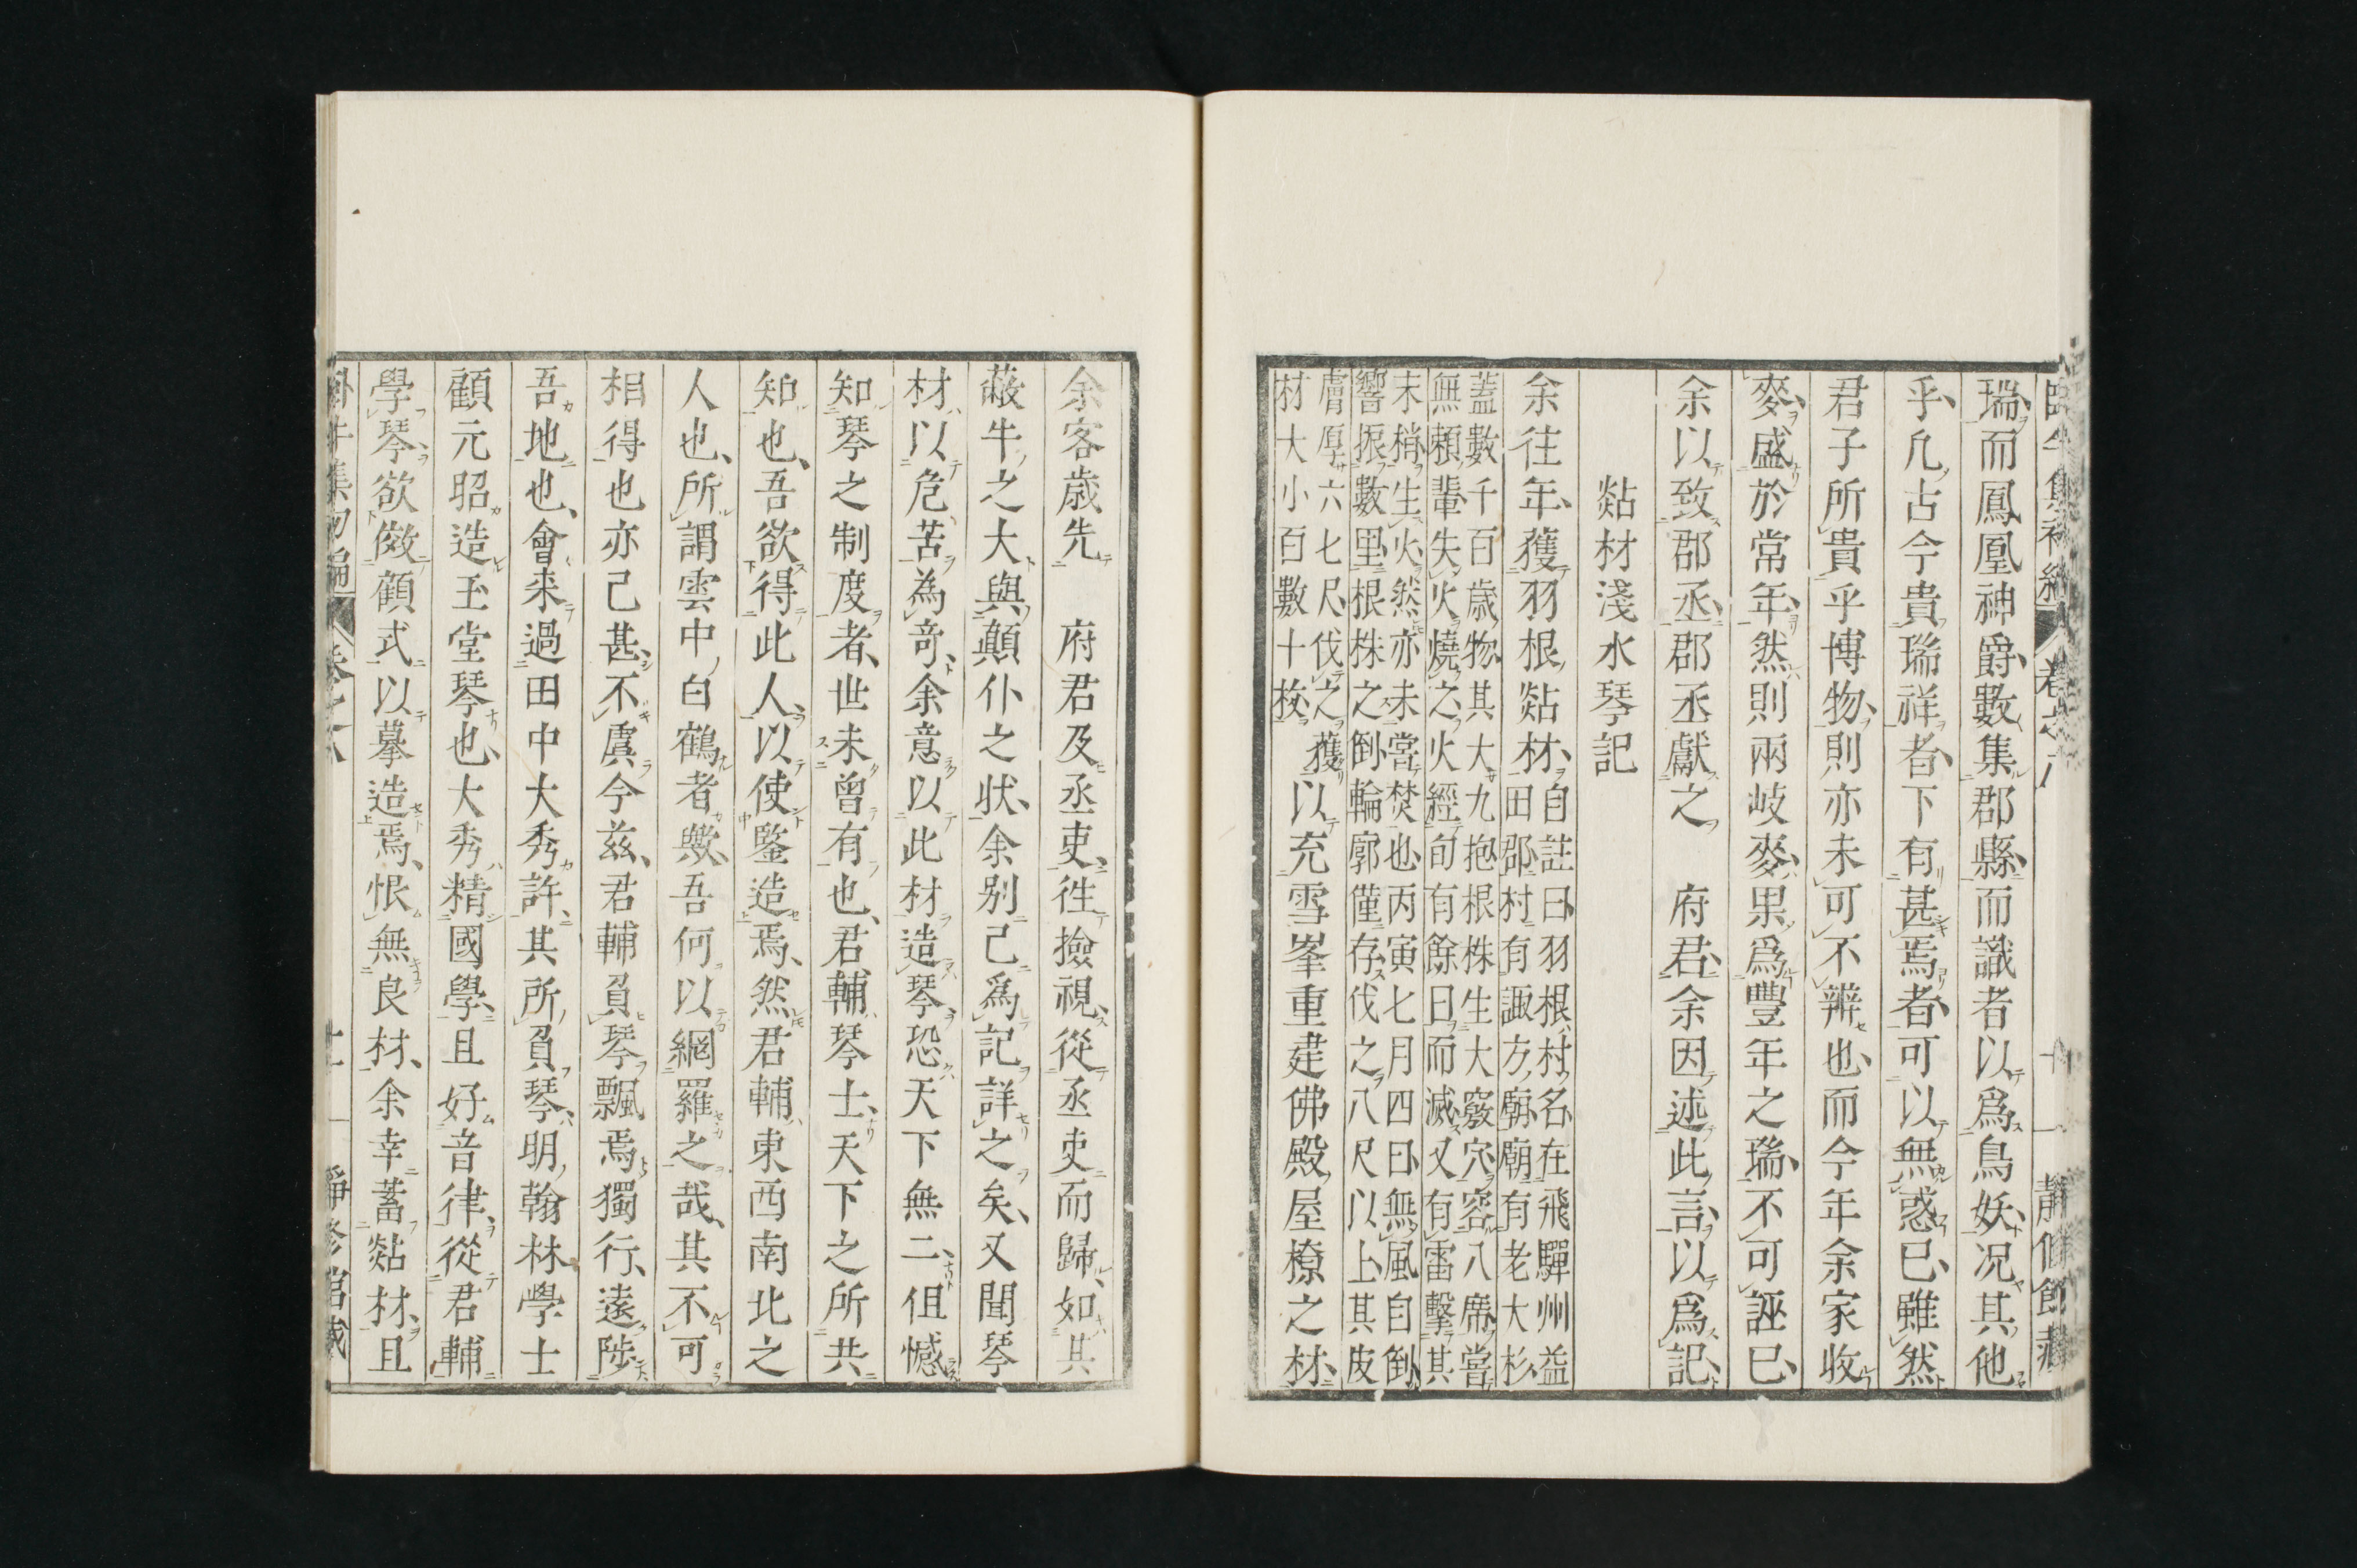 瑞而鳳凰神爵數集郡縣而識者以爲鳥妖况其他
乎凡古今貴瑞祥者下有甚焉者可以無惑已雖然
君子所貴乎博物則亦未可不辨也而今年余家收
麥盛於常年然則兩岐麥果爲豐年之瑞不可誣已
余以致郡丞郡丞獻之　府君余因述此言以爲記
㸃材淺水琴記
余往年獲羽根㸃材自註曰羽根村名在飛驒州益
田郡村有諏方廟廟有老大杉
蓋數千百歳物其大九抱根株生大竅穴容八席嘗
無頼輩失火燒之火經旬有餘日而滅又有雷擊其
末梢生火然亦未嘗焚也丙寅七月四日無風自倒
響振數里根株之倒輪廓僅存伐之八尺以上其皮
膚厚六七尺伐之獲
材大小百數十枚以充雪峯重建佛殿屋橑之材
余客歳先　府君及丞吏徃撿視從丞吏而歸如其
蔽牛之大與顛仆之状余別己爲記詳之矣又聞琴
材以危苦為竒余意以此材造琴恐天下無二但憾
知琴之制度者世未曾有也君輔琴士天下之所共
知也吾欲得此人以使鑒造焉然君輔東西南北之
人也所謂雲中白鶴者歟吾何以網羅之哉其不可
相得也亦己甚不虞今兹君輔負琴飄焉獨行遠陟
吾地也會来過田中大秀許其所負琴明翰林學士
顧元昭造玉堂琴也大秀精國學且好音律從君輔
學琴欲傚顧式以摹造焉恨無良材余幸蓄㸃材且